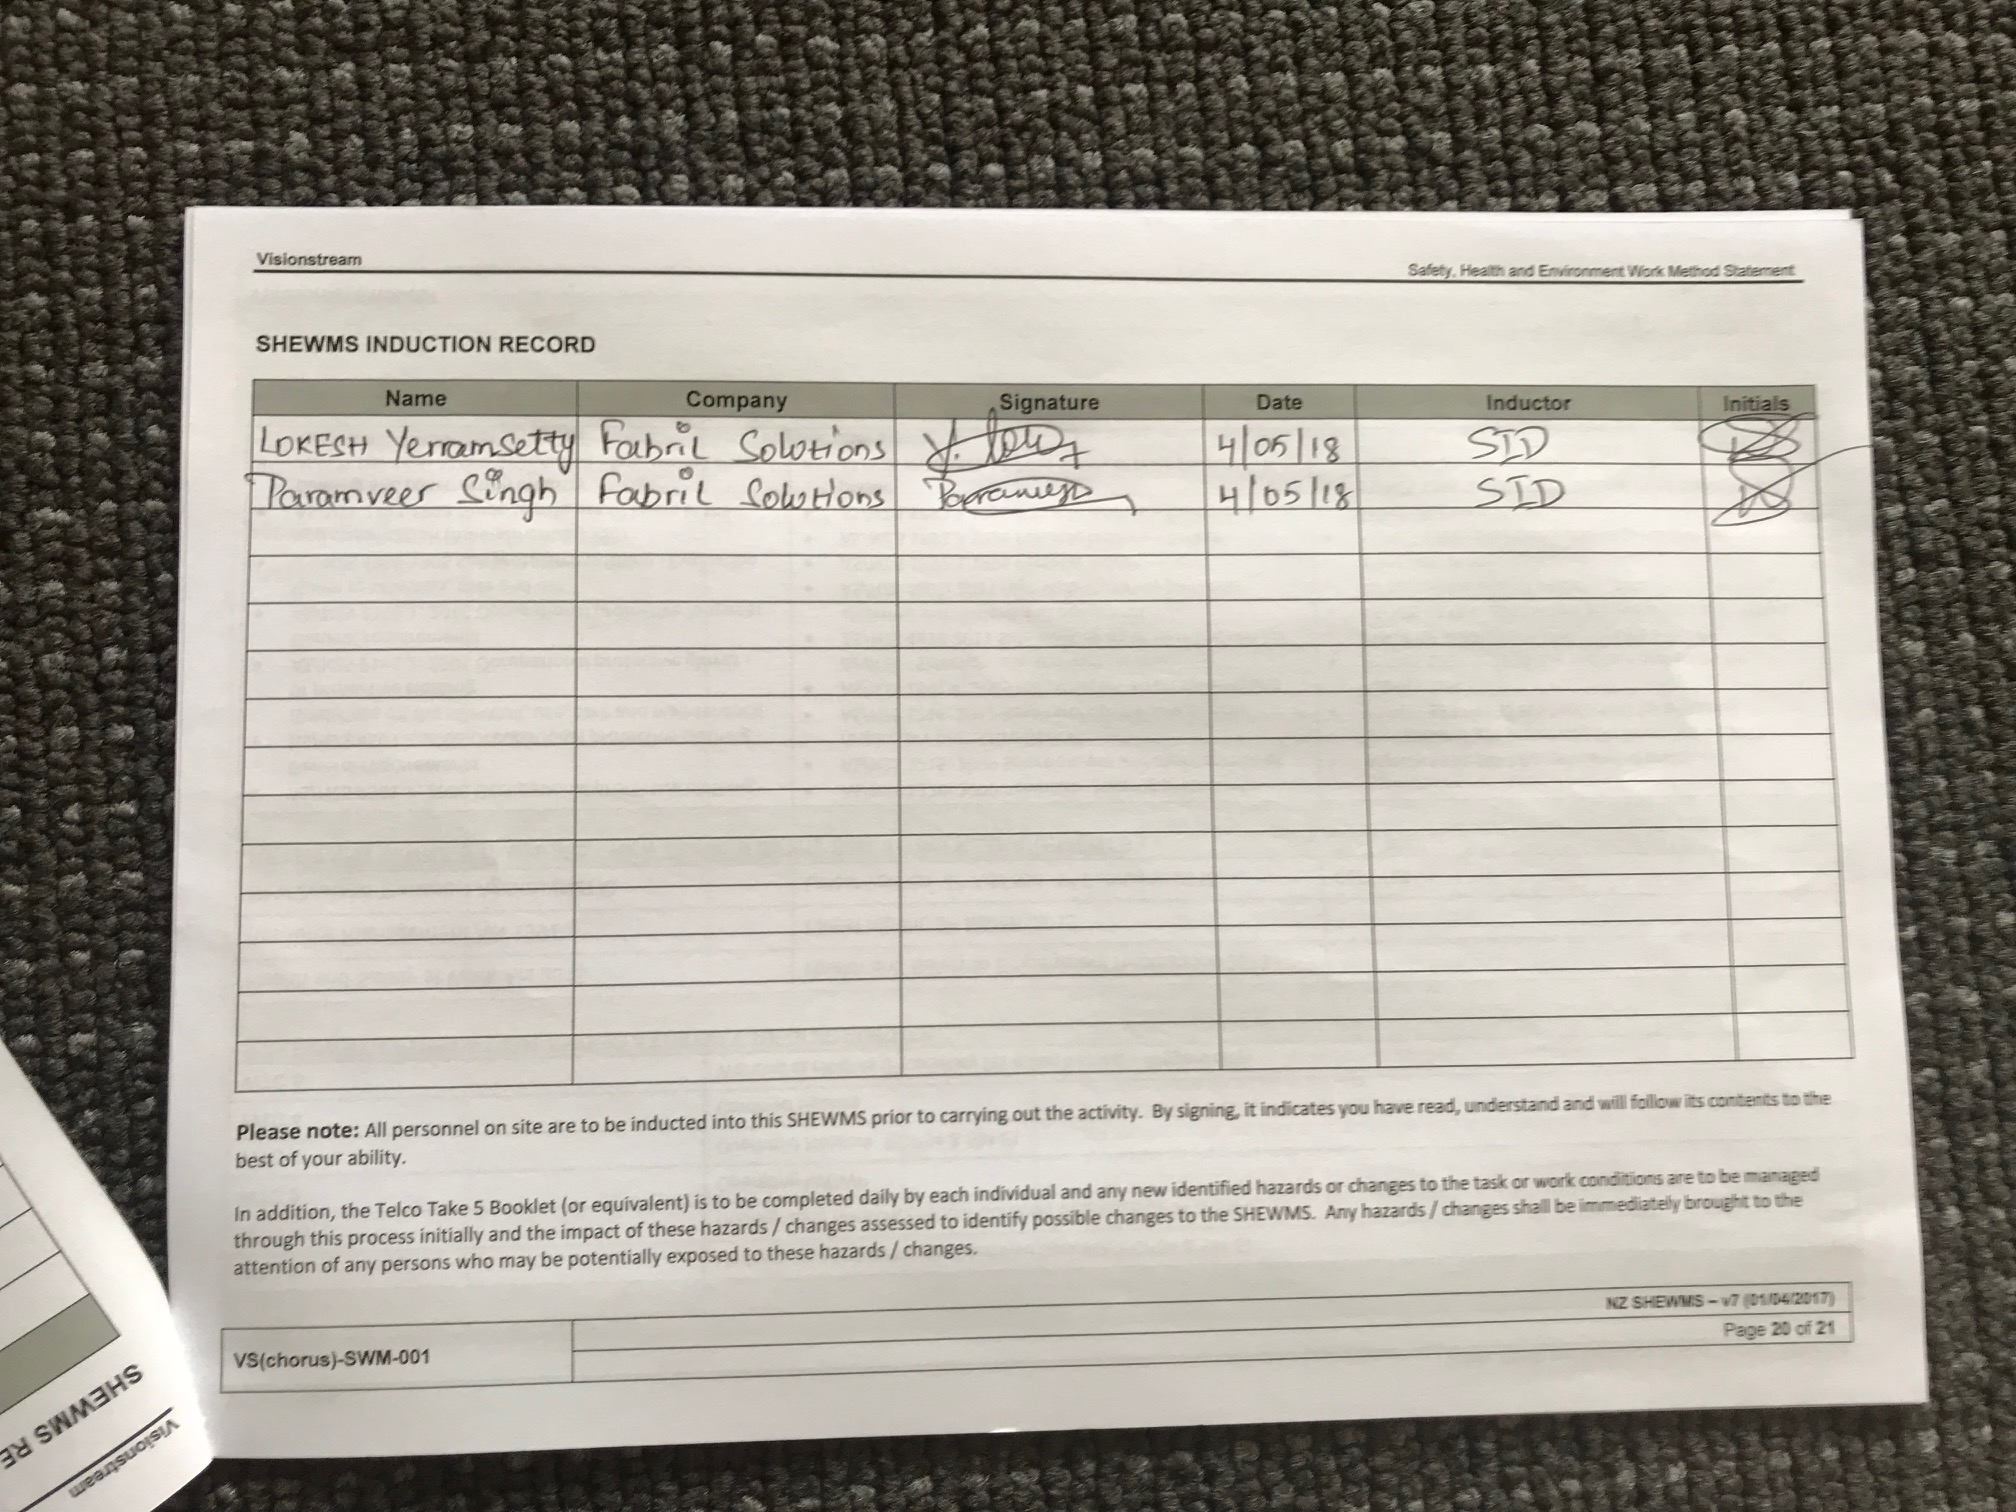 Visionstream Safety, Health and Environment Work Method Statement
SHEWMS INDUCTION RECORD
Name Company Signature Date Inductor Initials
LOKESH Yerramsetty Fabril Solutions 4/05/18 SID
Paramveer Singh Fabril Solutions Paramveer 4/05/18 SID
Please note: All personnel on site are to be inducted into this SHEWMS prior to carrying out the activity. By signing, it indicates you have read, understand and will follow its contents to the
best of your ability.
In addition, the Telco Take 5 Booklet (or equivalent) is to be completed daily by each individual and any new identified hazards or changes to the task or work conditions are to be managed
through this process initially and the impact of these hazards / changes assessed to identify possible changes to the SHEWMS. Any hazards / changes shall be immediately brought to the
attention of any persons who may be potentially exposed to these hazards / changes.
NZ SHEWMS – v7 (01/04/2017)
VS(chorus)-SWM-001 Page 20 of 21
Visionstream
SHEWMS RE